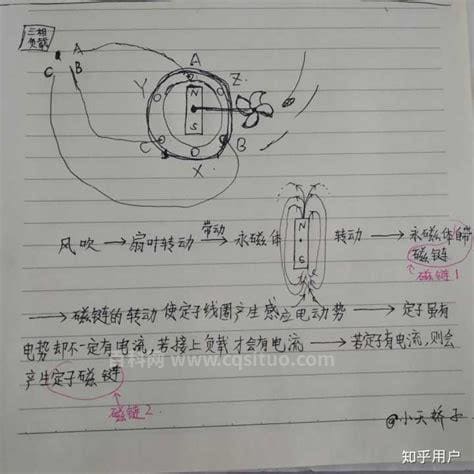 三相
负载
A
B
C
A
Y
Z
N
S
C
B
X
风吹 → 扇叶转动 带动→ 永磁体 N S 转动 → 永磁体自带
磁链
磁链1
→ 磁链的转动使定子线圈产生感应电动势 → 定子虽有
电势却不一定有电流,若接上负载才会有电流 → 若定子有电流,则会
产生定子磁链
磁链2.
百科网 www.cqsituo.com
@小天娇子
知乎用户